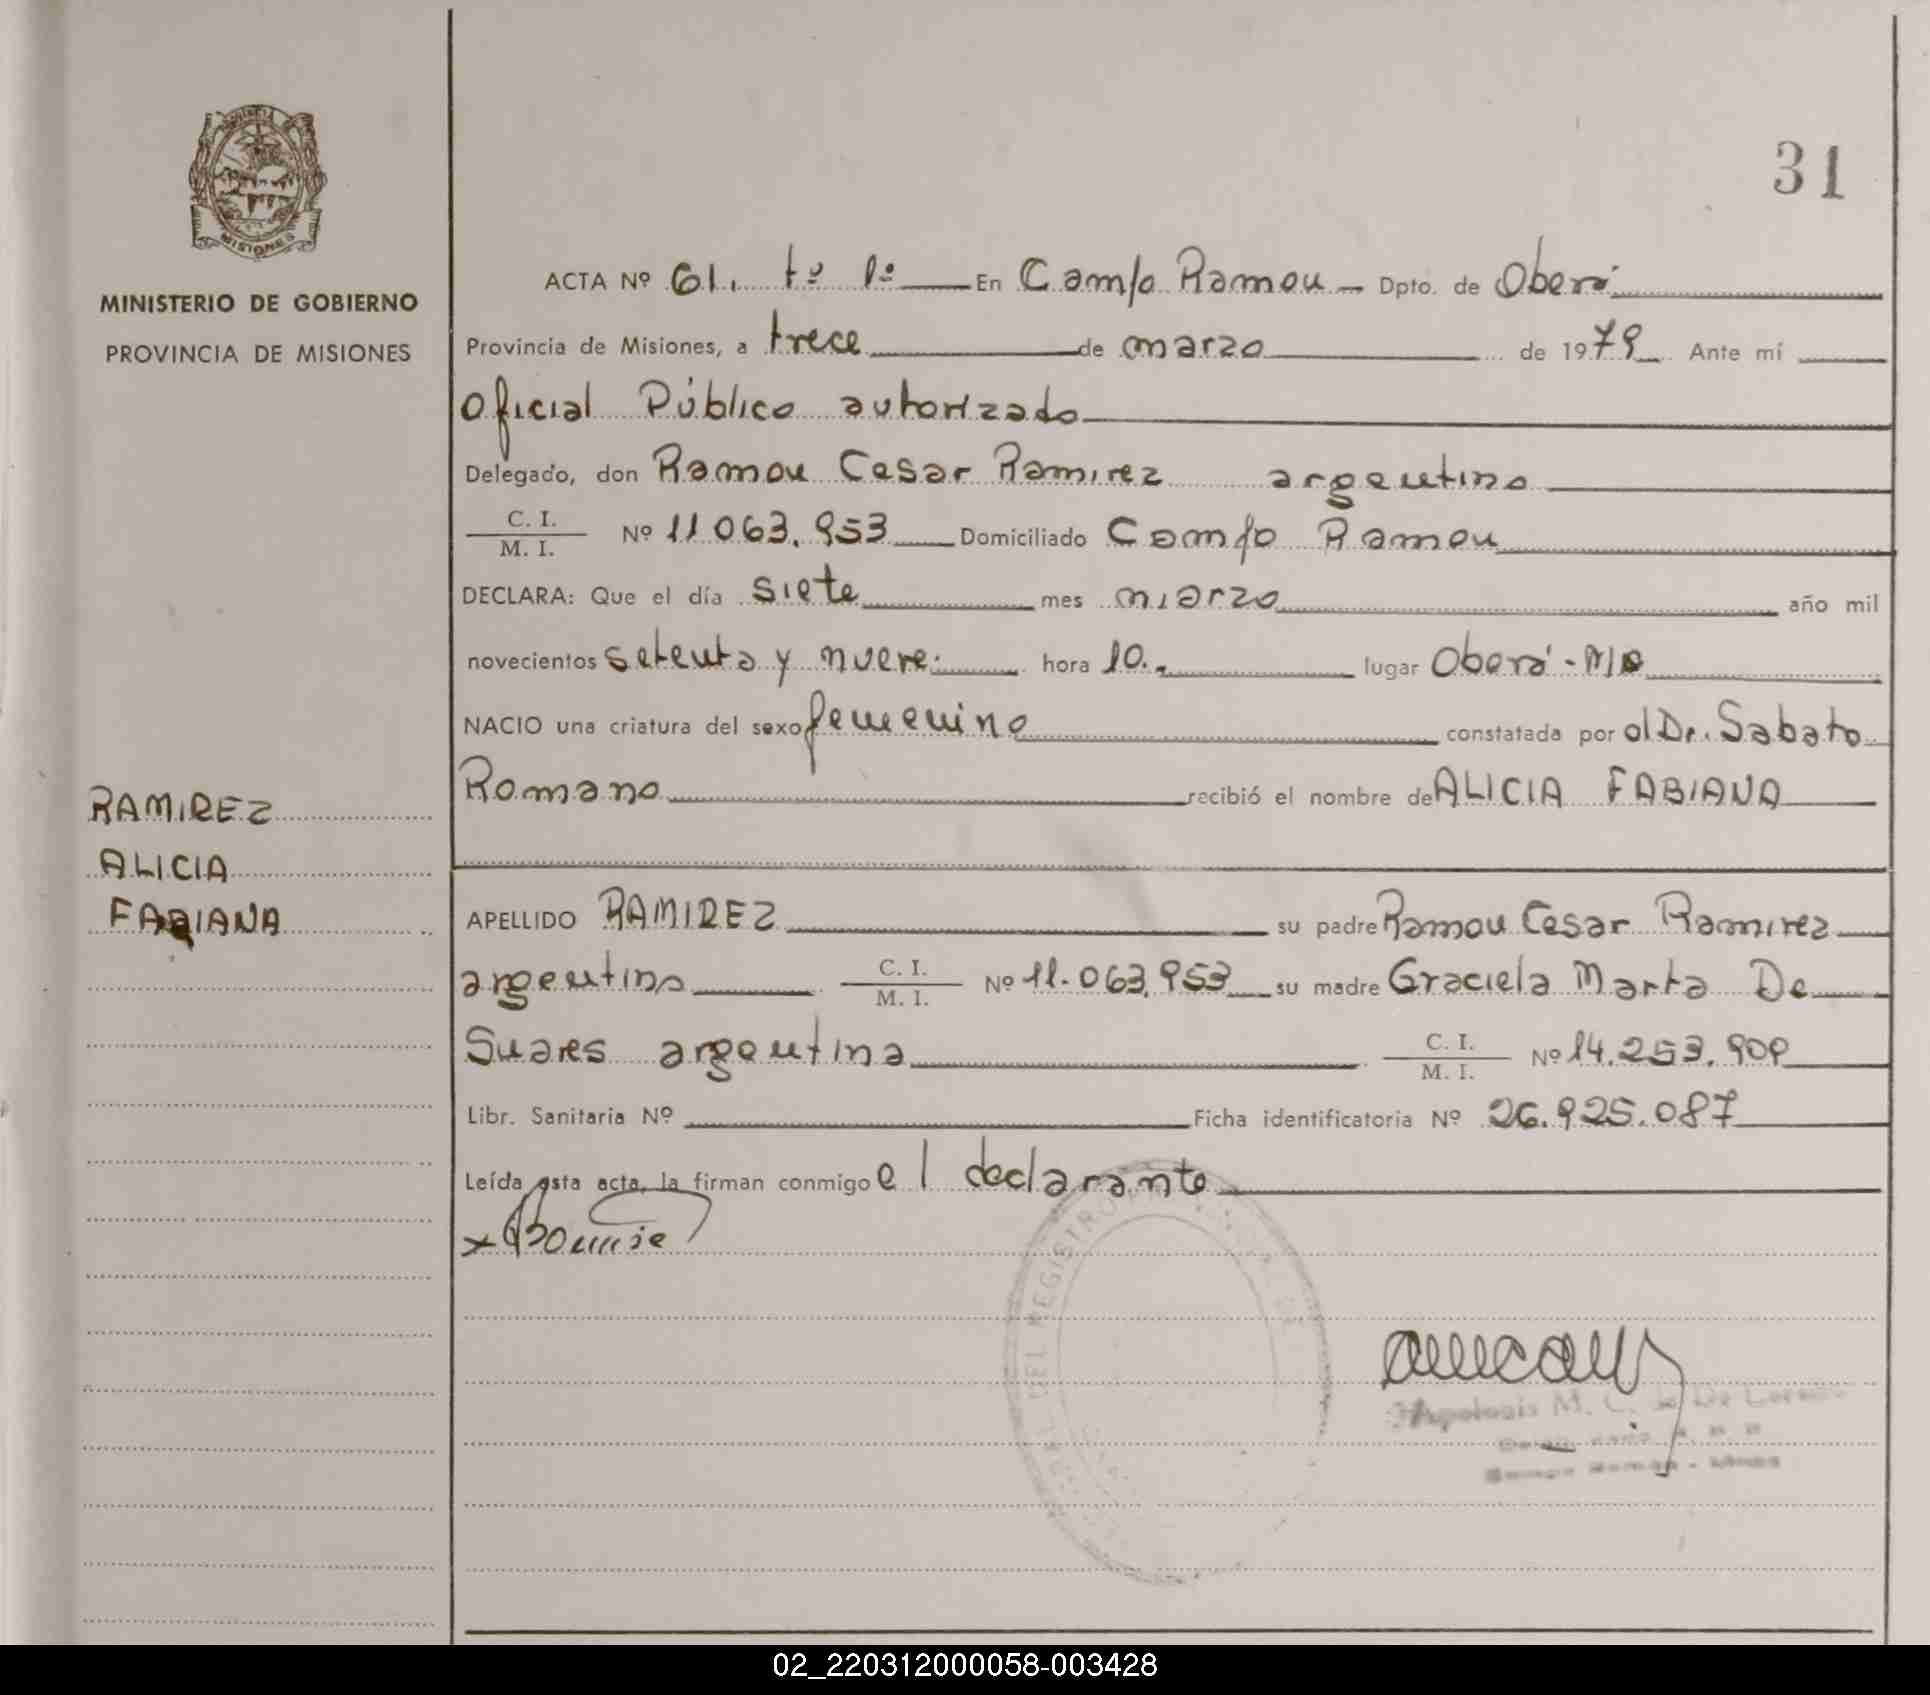 31
MINISTERIO DE GOBIERNO
PROVINCIA DE MISIONES
RAMIREZ
ALICIA
FABIANA
ACTA Nº 61. tº 1º En Campo Ramon - Dpto. de Oberá
Provincia de Misiones, a trece de marzo de 1979 Ante mí
Oficial Público autorizado
Delegado, don Ramon Cesar Ramirez argentino
C. I.
M. I. Nº 11.063.953 Domiciliado Campo Ramon
DECLARA: Que el día siete mes marzo año mil
novecientos setenta y nueve. hora 10. lugar Oberá
NACIO una criatura del sexo femenino constatada por el Dr. Sabato
Romano recibió el nombre de ALICIA FABIANA
APELLIDO RAMIREZ su padre Ramon Cesar Ramirez
argentino C. I.
M. I. Nº 11.063.953 su madre Graciela Marta De
Suares argentina C. I.
M. I. Nº 14.253.909
Libr. Sanitaria Nº Ficha identificatoria Nº 26.925.087
Leída esta acta, la firman conmigo el declarante
DEL REGISTRO
M. C. de De
02_220312000058-003428